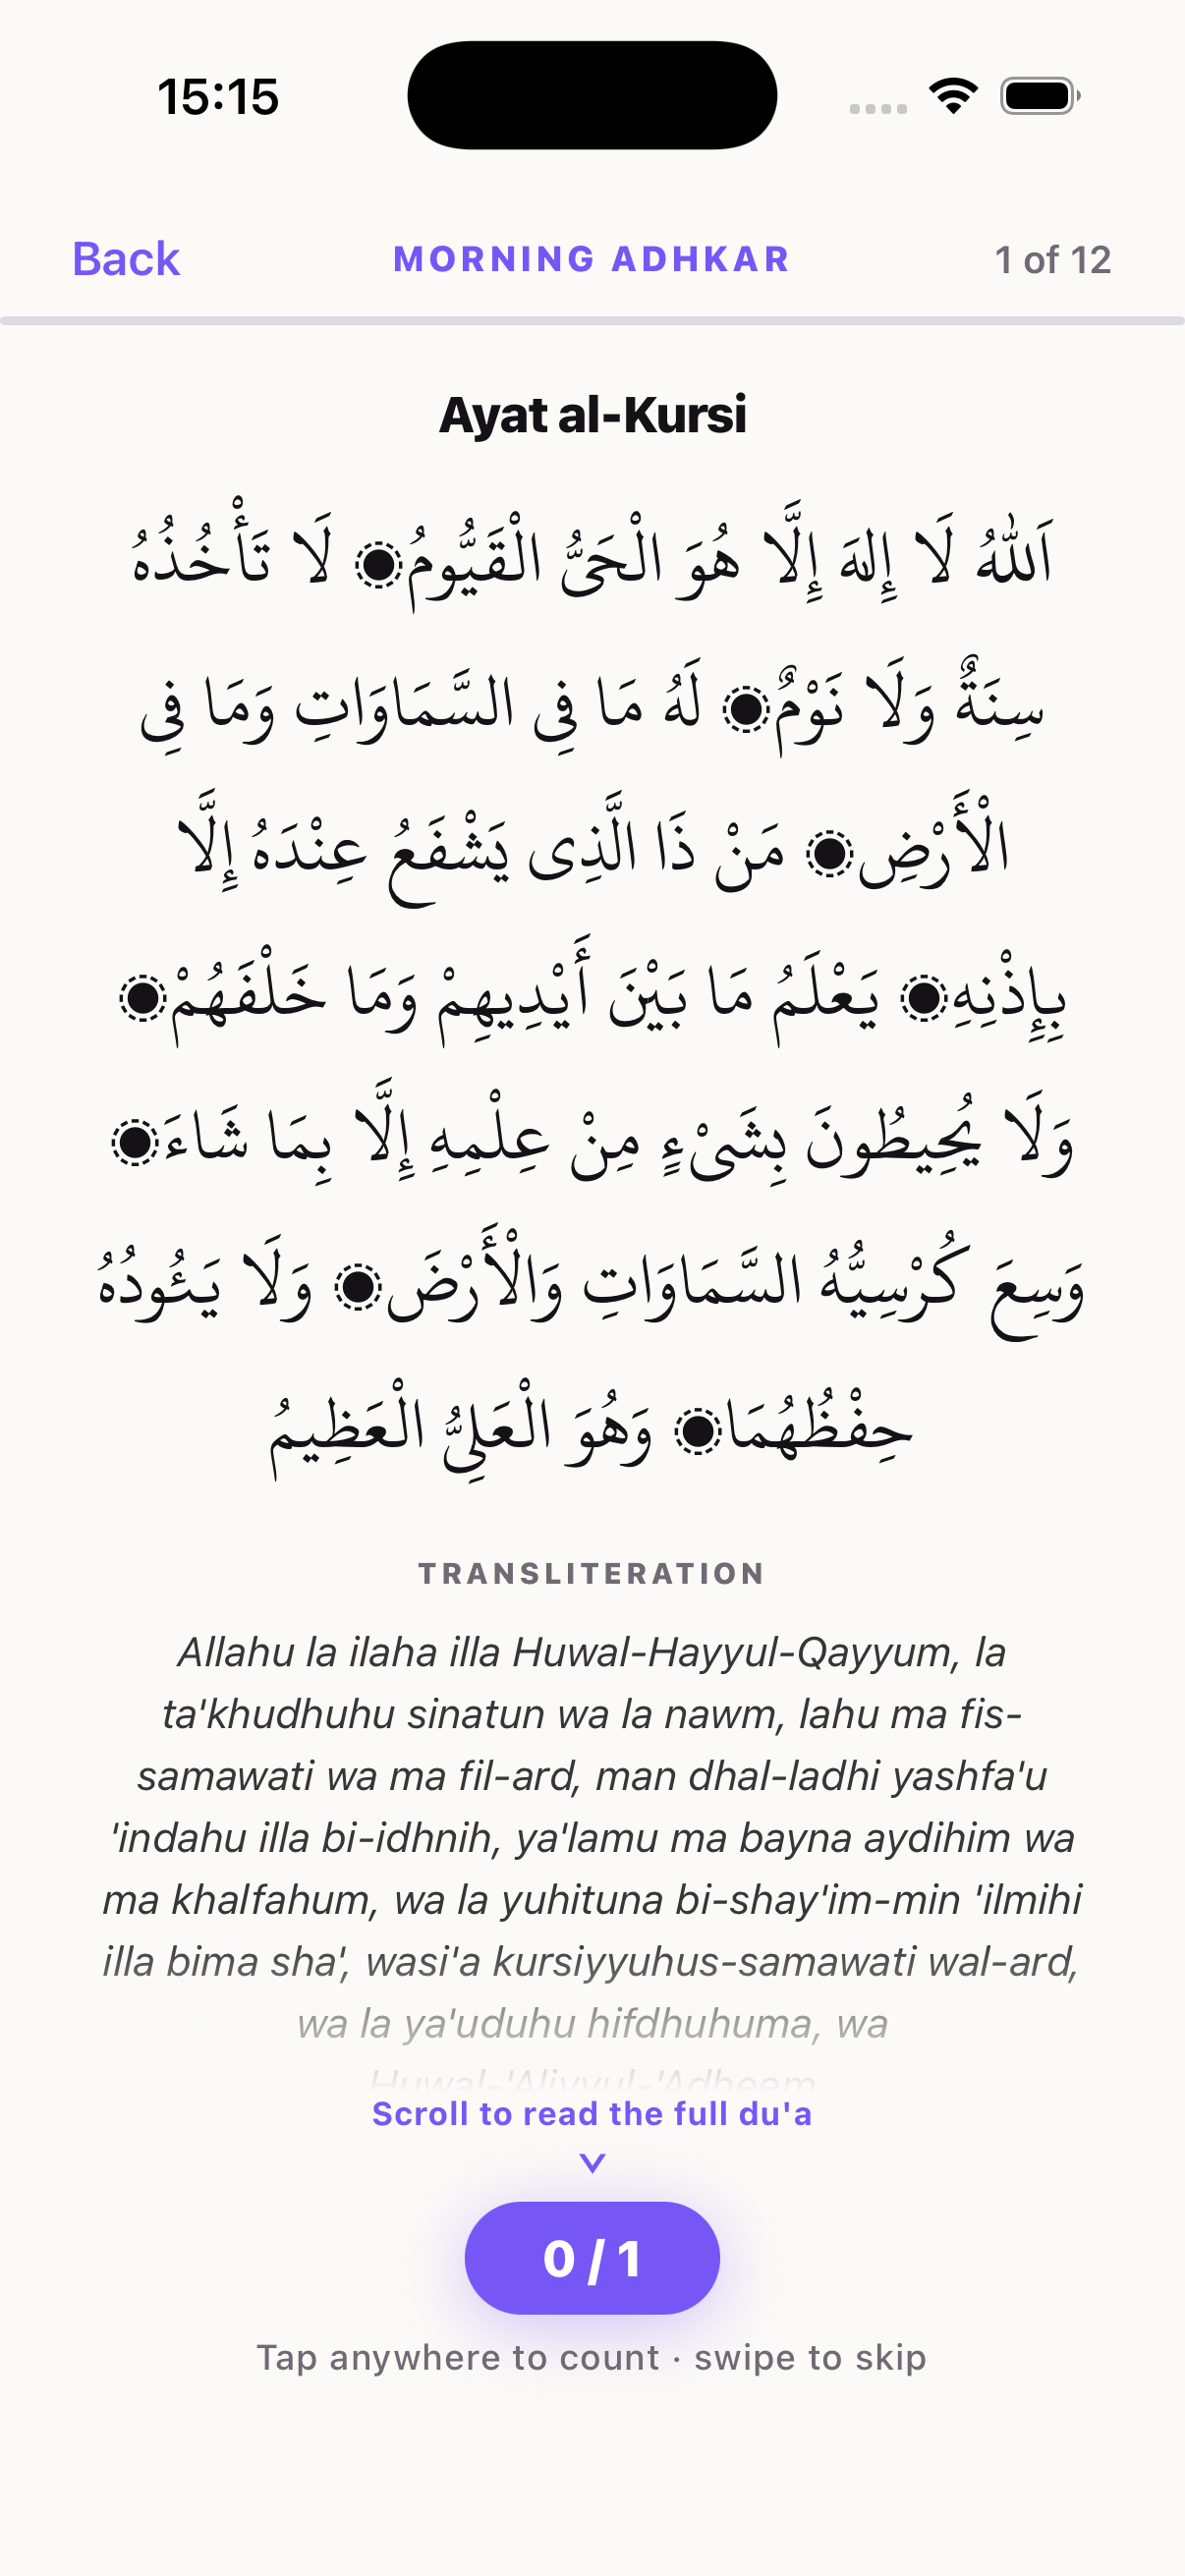 15:15
Back
MORNING ADHKAR
1 of 12
Ayat al-Kursi
اَللهُ لَا إِلهَ إِلَّا هُوَ الْحَىُّ الْقَيُّومُ۞ لَا تَأْخُذُهُ
سِنَةٌ وَلَا نَوْمٌ۞ لَهُ مَا فِى السَّمَاوَاتِ وَمَا فِى
الْأَرْضِ۞ مَنْ ذَا الَّذِى يَشْفَعُ عِنْدَهُ إِلَّا
بِإِذْنِهِ۞ يَعْلَمُ مَا بَيْنَ أَيْدِيهِمْ وَمَا خَلْفَهُمْ۞
وَلَا يُحِيطُونَ بِشَىْءٍ مِنْ عِلْمِهِ إِلَّا بِمَا شَاءَ۞
وَسِعَ كُرْسِيُّهُ السَّمَاوَاتِ وَالْأَرْضَ۞ وَلَا يَـُٔودُهُ
حِفْظُهُمَا۞ وَهُوَ الْعَلِىُّ الْعَظِيمُ
TRANSLITERATION
Allahu la ilaha illa Huwal-Hayyul-Qayyum, la
ta'khudhuhu sinatun wa la nawm, lahu ma fis-
samawati wa ma fil-ard, man dhal-ladhi yashfa'u
'indahu illa bi-idhnih, ya'lamu ma bayna aydihim wa
ma khalfahum, wa la yuhituna bi-shay'im-min 'ilmihi
illa bima sha', wasi'a kursiyyuhus-samawati wal-ard,
wa la ya'uduhu hifdhuhuma, wa
Huwal-'Aliyyul-'Adheem
Scroll to read the full du'a
0 / 1
Tap anywhere to count · swipe to skip